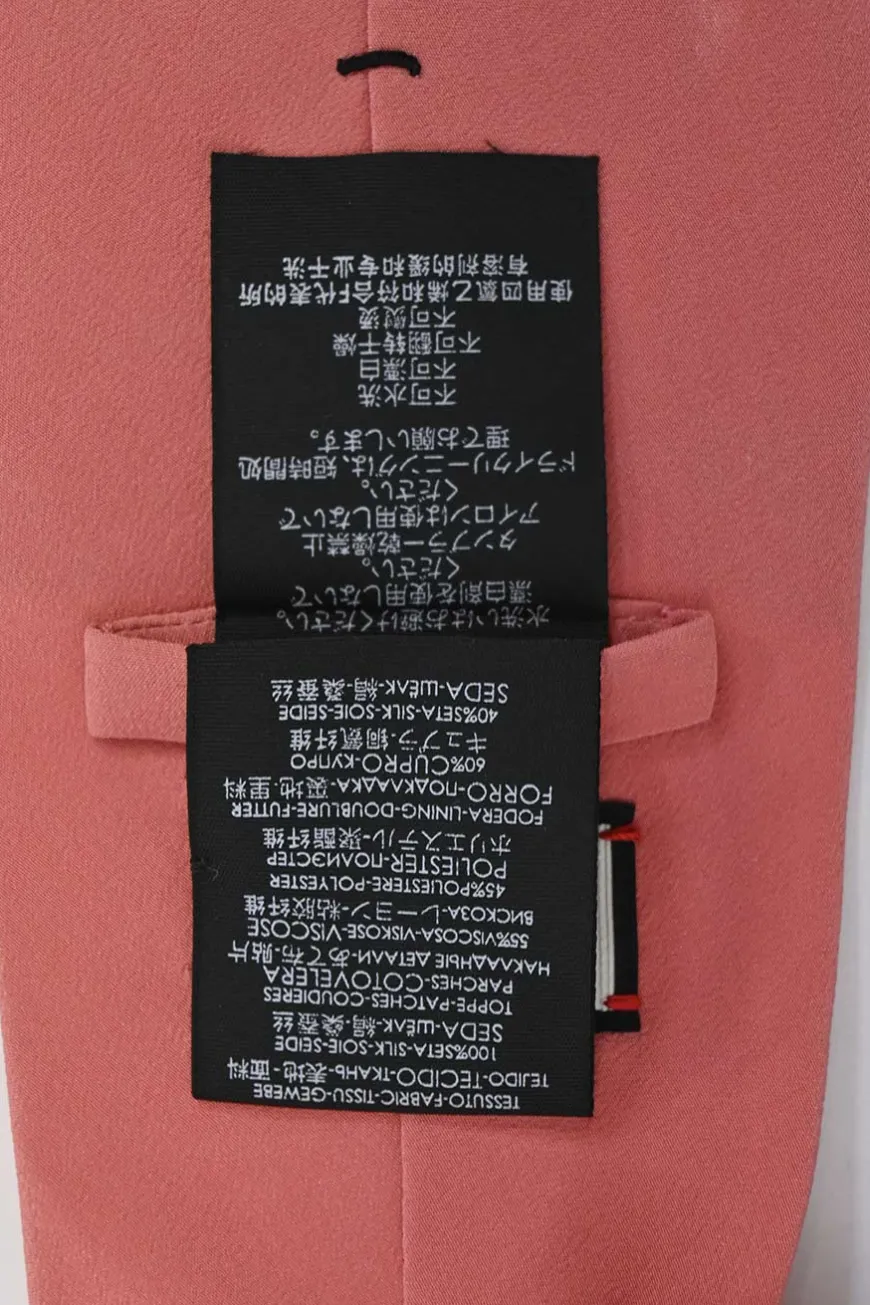 TESSUTO-FABRIC-TISSU-GEWEBE
TEJIDO-TECIDO-ТКАНЬ-表地-面料
100%SETA-SILK-SOIE-SEIDE
SEDA-ШЁЛК-絹-桑蚕丝
TOPPE-PATCHES-COUDIERES
PARCHES-COTOVELERA
НАКЛАДНЫЕ ДЕТАЛИ-あて布-贴片
55%VISCOSA-VISKOSE-VISCOSE
ВИСКОЗА-レーヨン-粘胶纤维
45%POLIESTERE-POLYESTER
POLIESTER-ПОЛИЭСТЕР
ポリエステル-聚酯纤维
FODERA-LINING-DOUBLURE-FUTTER
FORRO-ПОДКЛАДКА-裏地-里料
60%CUPRO-КУПРО
キュプラ-铜氨纤维
40%SETA-SILK-SOIE-SEIDE
SEDA-ШЁЛК-絹-桑蚕丝
水洗いはお避けください。
漂白剤を使用しないで
ください。
タンブラー乾燥禁止
アイロンは使用しないで
ください。
ドライクリーニングは、短時間処
理でお願いします。
不可水洗
不可漂白
不可翻转干燥
不可熨烫
使用四氯乙烯和符合F代表的所
有溶剂的缓和专业干洗